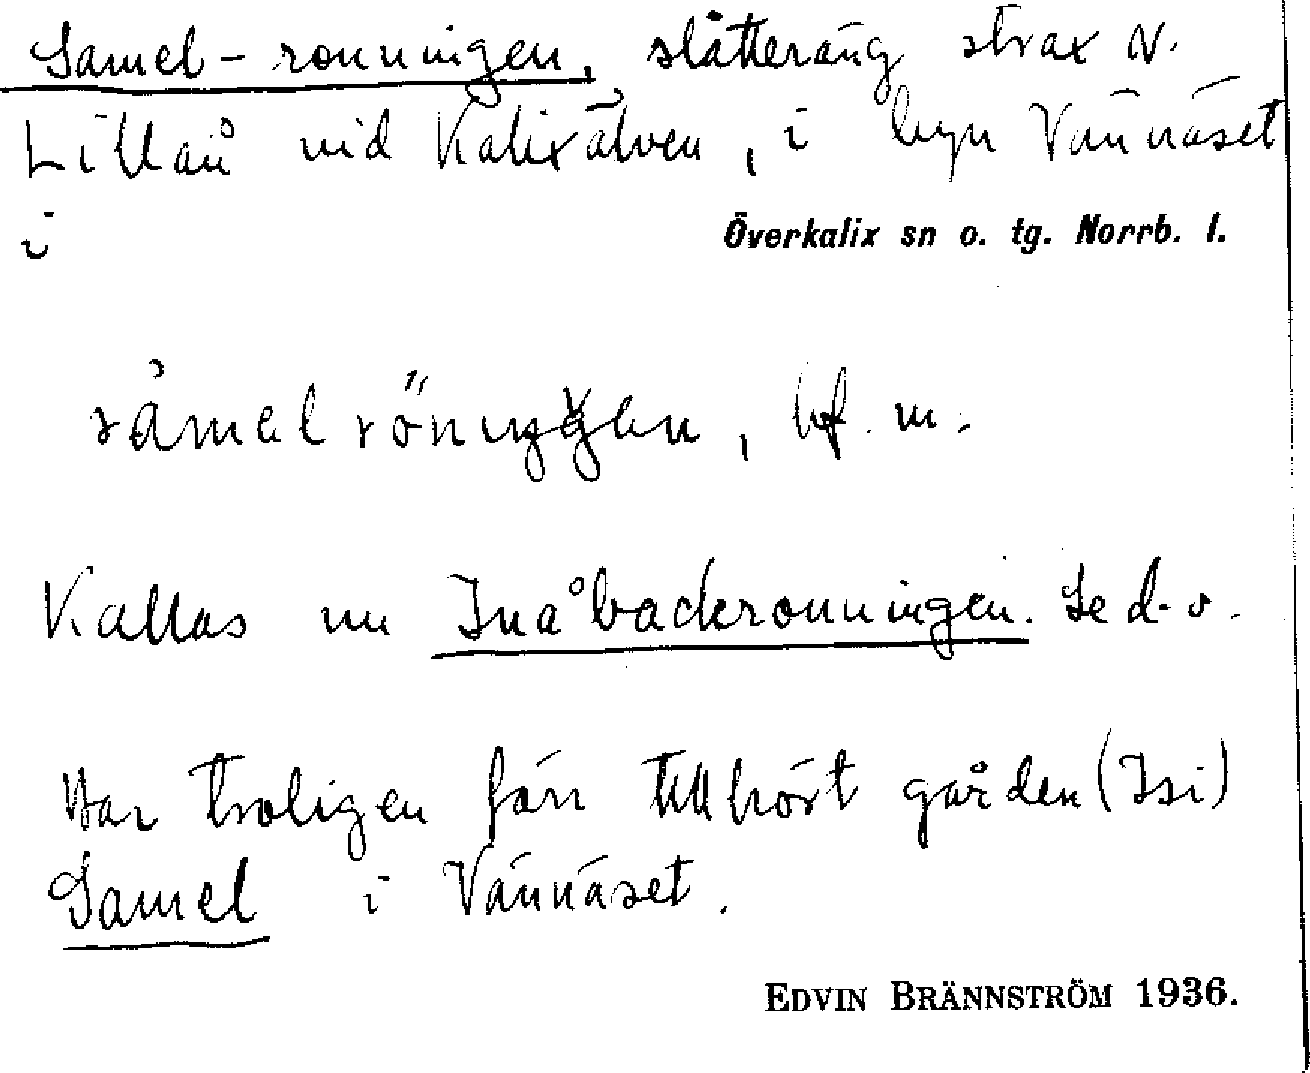 Samel-ronningen, slåtteräng strax N.
Lillån vid Kalixälven, i byn Vännäset
i Överkalix sn o. tg. Norrb. l.
bf. m.
Kallas nu Inåbackronningen. Se d. o.
Har troligen förr tillhört gården (Isi)
Samel i Vännäset.
EDVIN BRÄNNSTRÖM 1936.